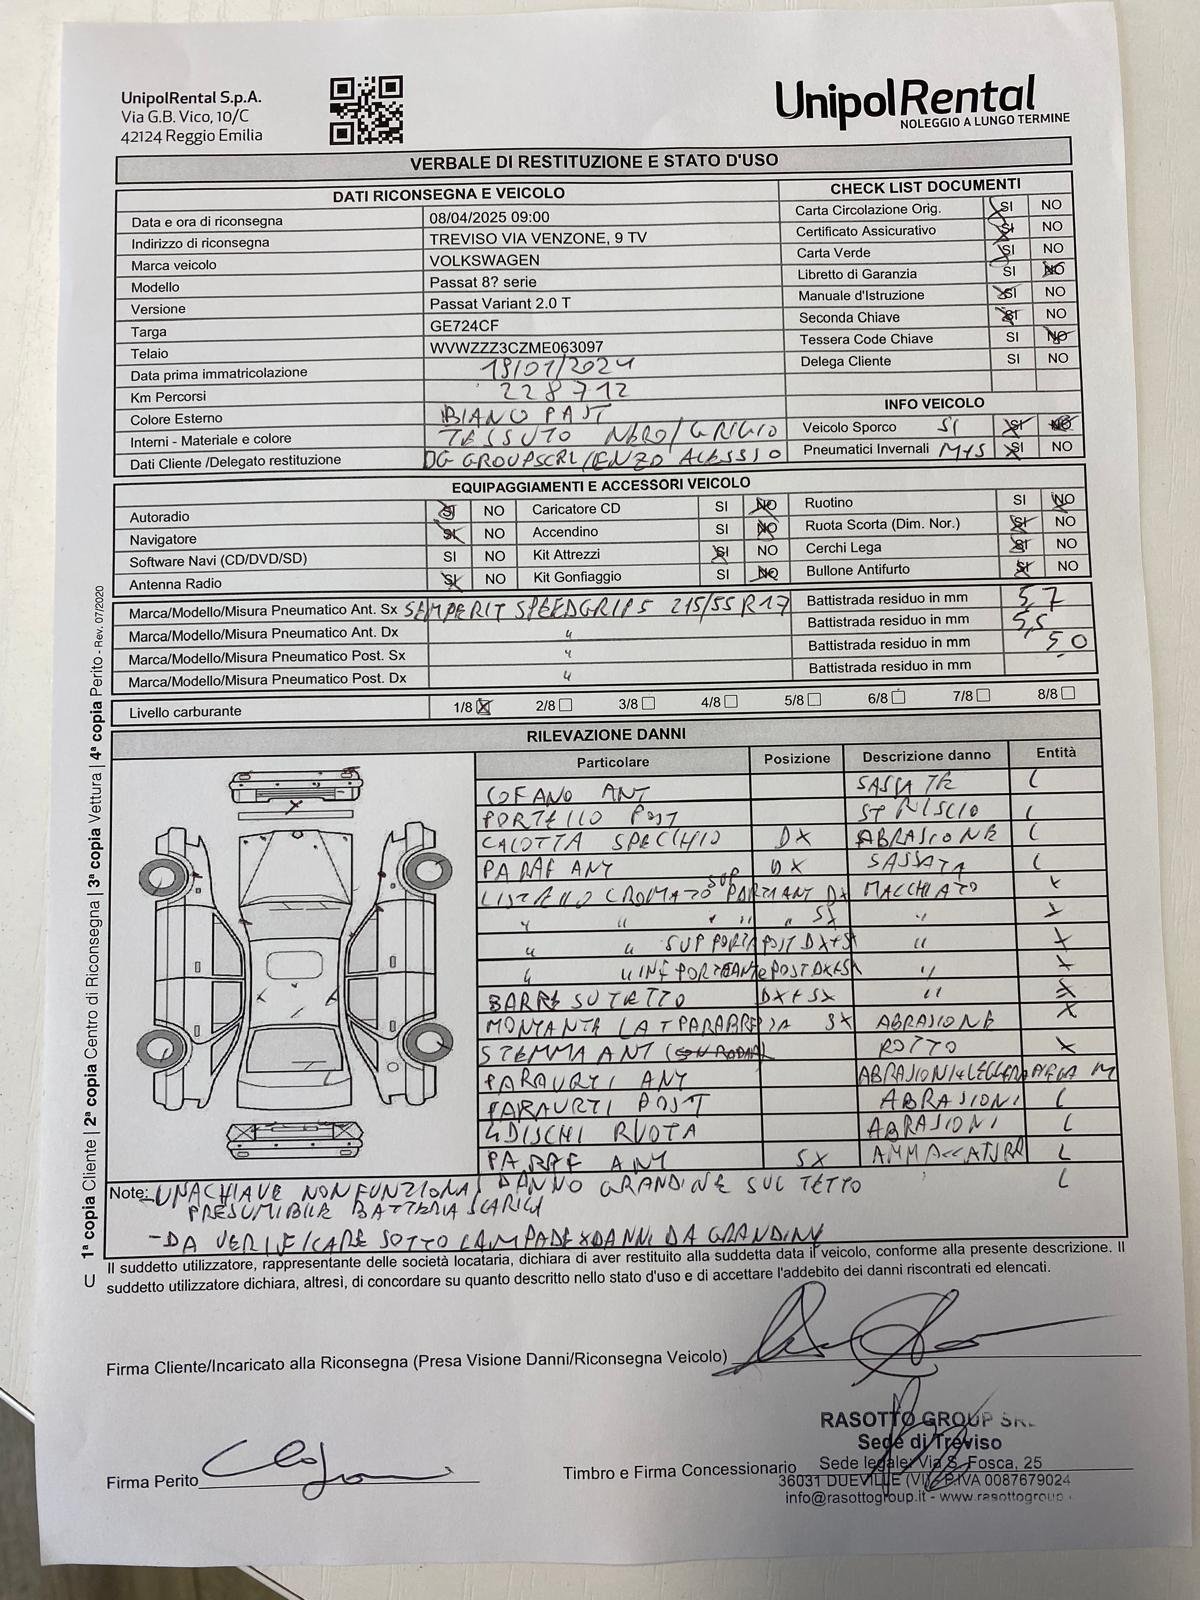 UnipolRental S.p.A.
Via G.B. Vico, 10/C
42124 Reggio Emilia
UnipolRental
NOLEGGIO A LUNGO TERMINE
VERBALE DI RESTITUZIONE E STATO D'USO
DATI RICONSEGNA E VEICOLO
Data e ora di riconsegna 08/04/2025 09:00
Indirizzo di riconsegna TREVISO VIA VENZONE, 9 TV
Marca veicolo VOLKSWAGEN
Modello Passat 8? serie
Versione Passat Variant 2.0 T
Targa GE724CF
Telaio WVWZZZ3CZME063097
Data prima immatricolazione 19/01/2021
Km Percorsi 228712
Colore Esterno BIANO PAST
Interni - Materiale e colore TESSUTO NERO/GRIGIO
Dati Cliente /Delegato restituzione DG GROUPSCRL/ENZO ALESSIO
CHECK LIST DOCUMENTI
Carta Circolazione Orig. SI NO
Certificato Assicurativo SI NO
Carta Verde SI NO
Libretto di Garanzia SI NO
Manuale d'Istruzione SI NO
Seconda Chiave SI NO
Tessera Code Chiave SI NO
Delega Cliente SI NO
INFO VEICOLO
Veicolo Sporco SI SI NO
Pneumatici Invernali M+S SI NO
EQUIPAGGIAMENTI E ACCESSORI VEICOLO
Autoradio SI NO Caricatore CD SI NO Ruotino SI NO
Navigatore SI NO Accendino SI NO Ruota Scorta (Dim. Nor.) SI NO
Software Navi (CD/DVD/SD) SI NO Kit Attrezzi SI NO Cerchi Lega SI NO
Antenna Radio SI NO Kit Gonfiaggio SI NO Bullone Antifurto SI NO
Marca/Modello/Misura Pneumatico Ant. Sx SEMPERIT SPEEDGRIP 5 215/55 R17 Battistrada residuo in mm 5,7
Marca/Modello/Misura Pneumatico Ant. Dx " Battistrada residuo in mm 5,5
Marca/Modello/Misura Pneumatico Post. Sx " Battistrada residuo in mm 5,0
Marca/Modello/Misura Pneumatico Post. Dx " Battistrada residuo in mm
Livello carburante 1/8 2/8 3/8 4/8 5/8 6/8 7/8 8/8
RILEVAZIONE DANNI
Particolare Posizione Descrizione danno Entità
COFANO ANT SASSATE L
PORTELLO POST STRISCIO L
CALOTTA SPECCHIO DX ABRASIONE L
PARAF ANT DX SASSATA L
LISTELLO CROMATO SUP PORTA ANT DX MACCHIATO X
" " " " " SX " X
" " SUP PORTA POST DX+SX " X
" " INF PORTE ANT e POST DX+SX " X
BARRE SU TETTO DX+SX " X
MONTANTE LAT PARABREZZA SX ABRASIONE X
STEMMA ANT ROTTO X
PARAURTI ANT ABRASIONI M
PARAURTI POST ABRASIONI L
4 DISCHI RUOTA ABRASIONI L
PARAF ANT SX AMMACCATURA L
Note: - UNA CHIAVE NON FUNZIONA DANNO GRANDINE SUL TETTO L
PRESUMIBILE BATTERIA SCARICA
- DA VERIFICARE SOTTO LAMPADE X DANNI DA GRANDINE
Il suddetto utilizzatore, rappresentante delle società locataria, dichiara di aver restituito alla suddetta data il veicolo, conforme alla presente descrizione. Il
suddetto utilizzatore dichiara, altresì, di concordare su quanto descritto nello stato d'uso e di accettare l'addebito dei danni riscontrati ed elencati.
Firma Cliente/Incaricato alla Riconsegna (Presa Visione Danni/Riconsegna Veicolo)
Firma Perito
Timbro e Firma Concessionario
RASOTTO GROUP SRL
Sede di Treviso
Sede legale: Via S. Fosca, 25
36031 DUEVILLE (VI) - P.IVA 0087679024
info@rasottogroup.it - www.rasottogroup.
1ª copia Cliente | 2ª copia Centro di Riconsegna | 3ª copia Vettura | 4ª copia Perito - Rev. 07/2020